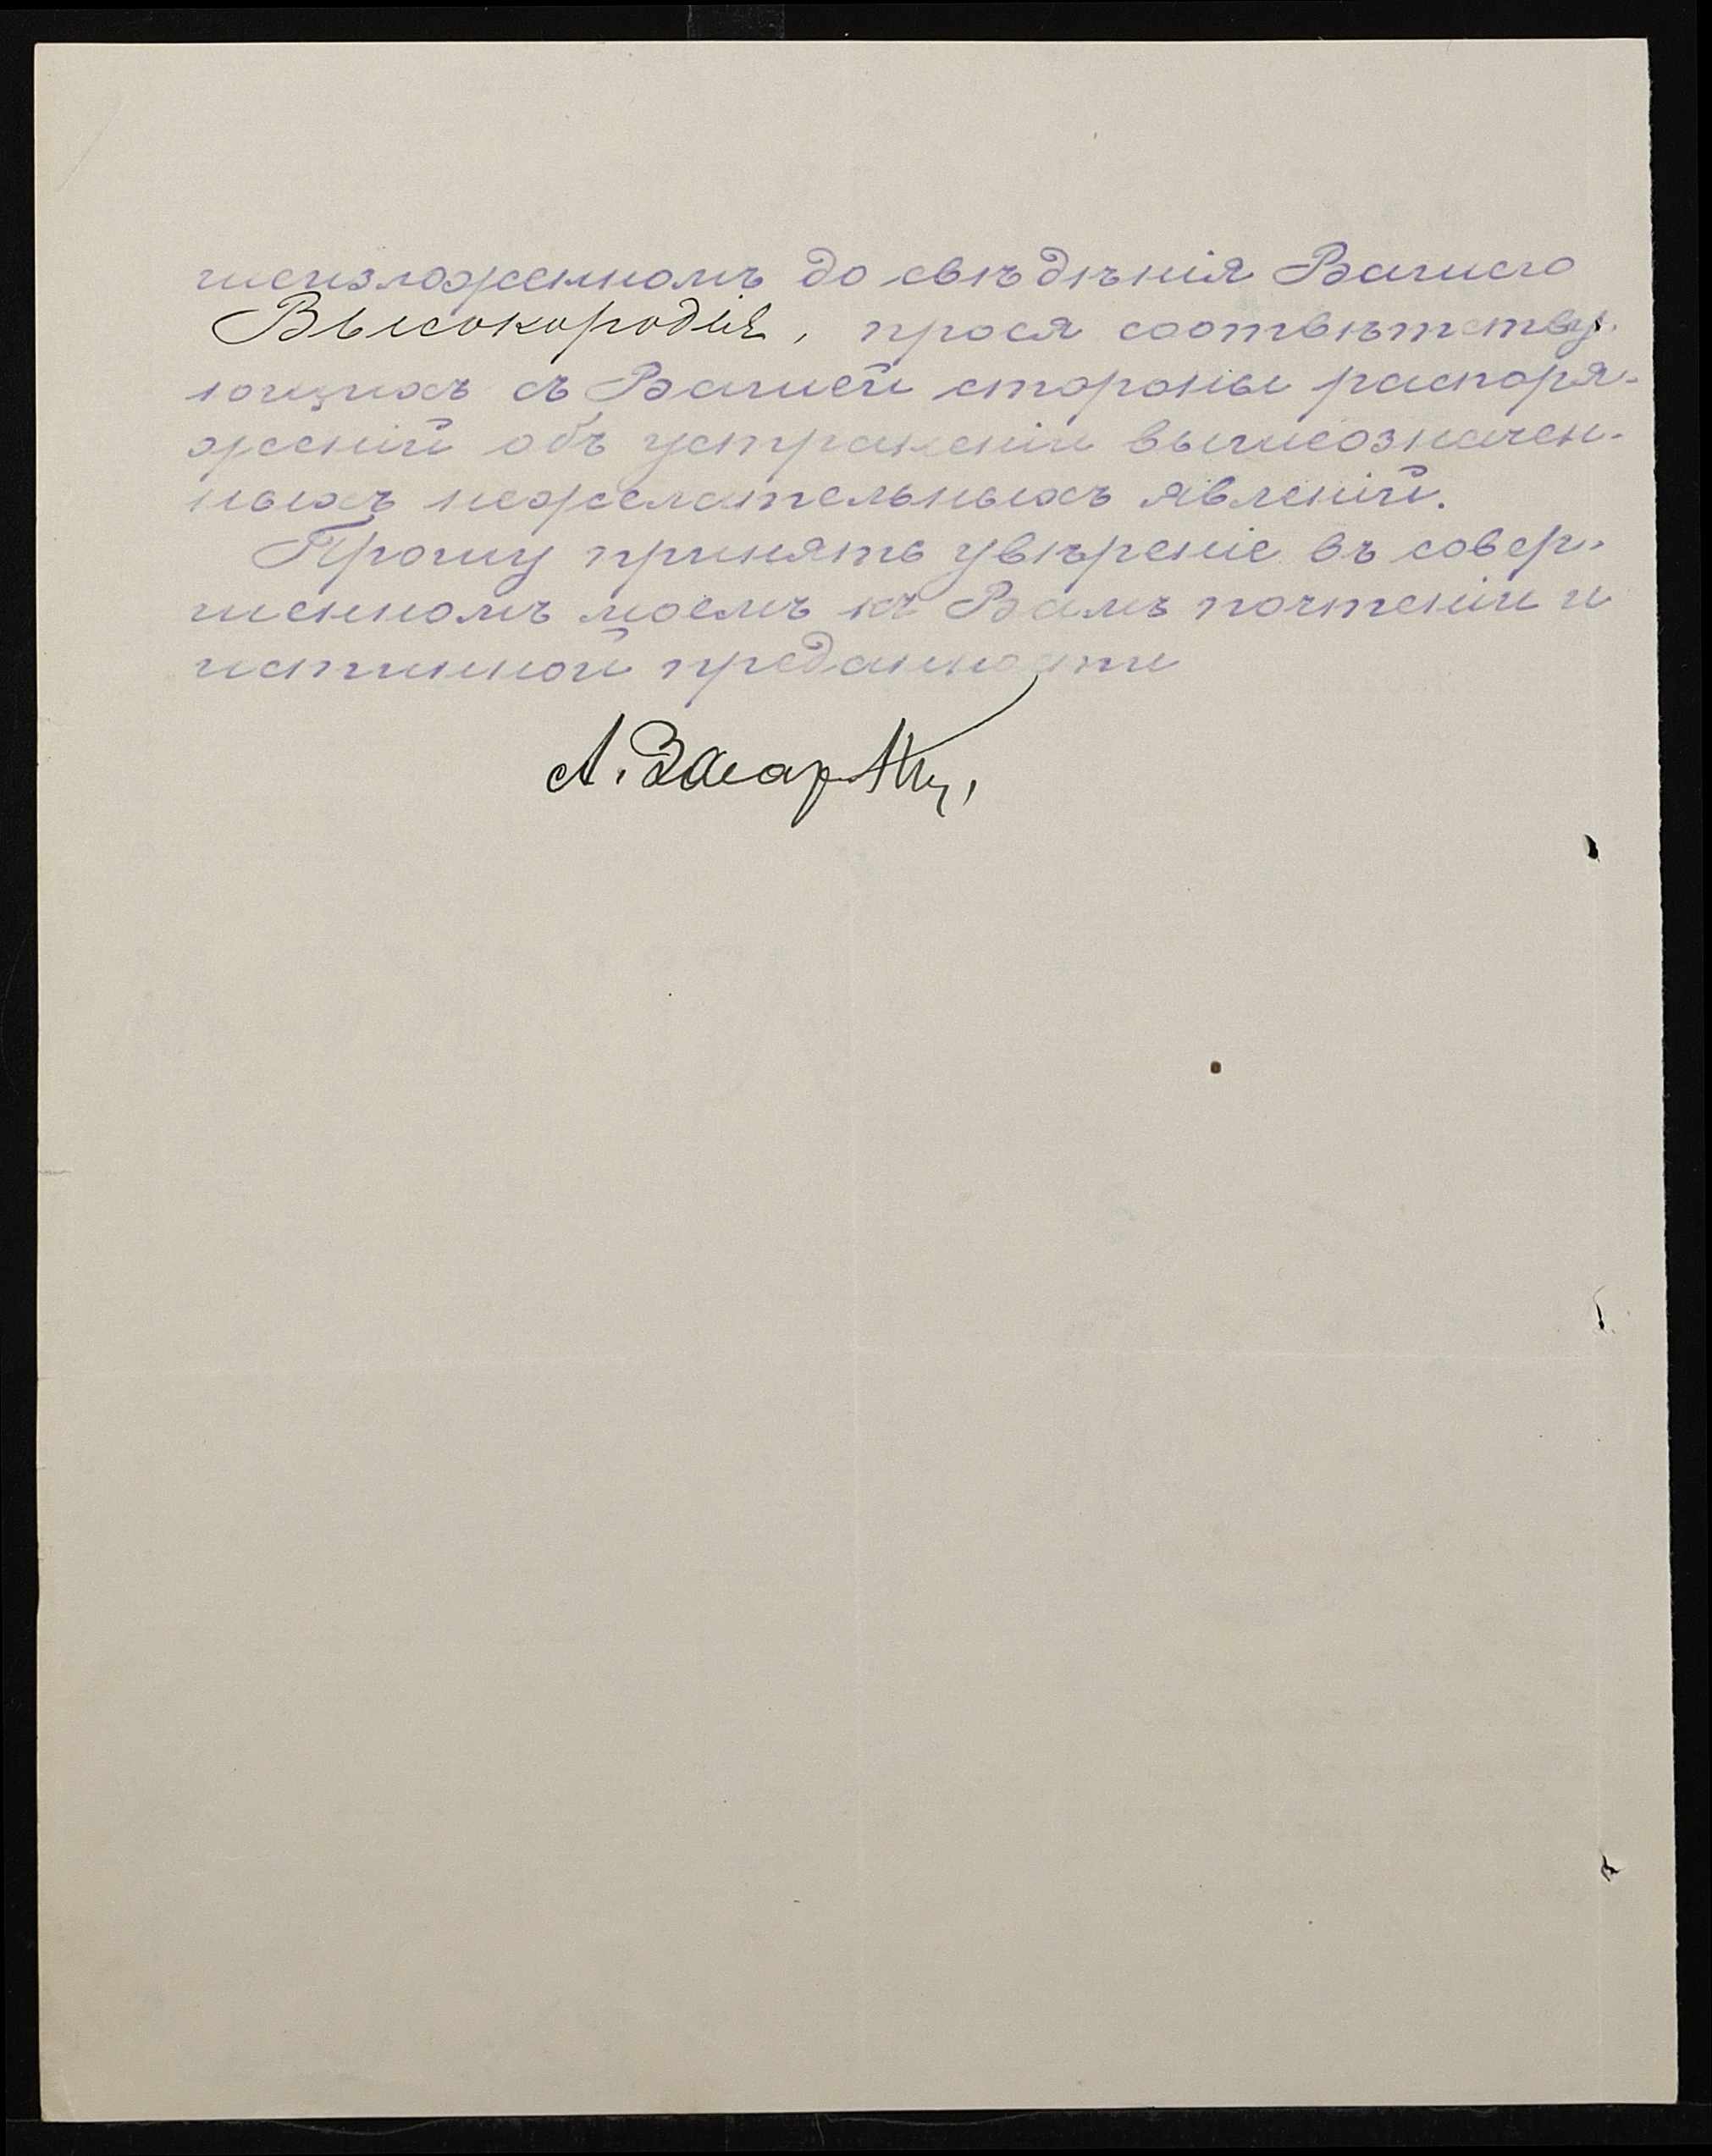 шеизложенномъ до свѣдѣнія Вашего
Высокородія, прося соотвѣтству-
ющихъ съ Вашей стороны распоря-
женій объ устраненіи вышеозначен-
ныхъ нежелательныхъ явленій.
Прошу принять увѣреніе въ совер-
шенномъ моемъ къ Вамъ почтеніи и
истинной преданности
А.